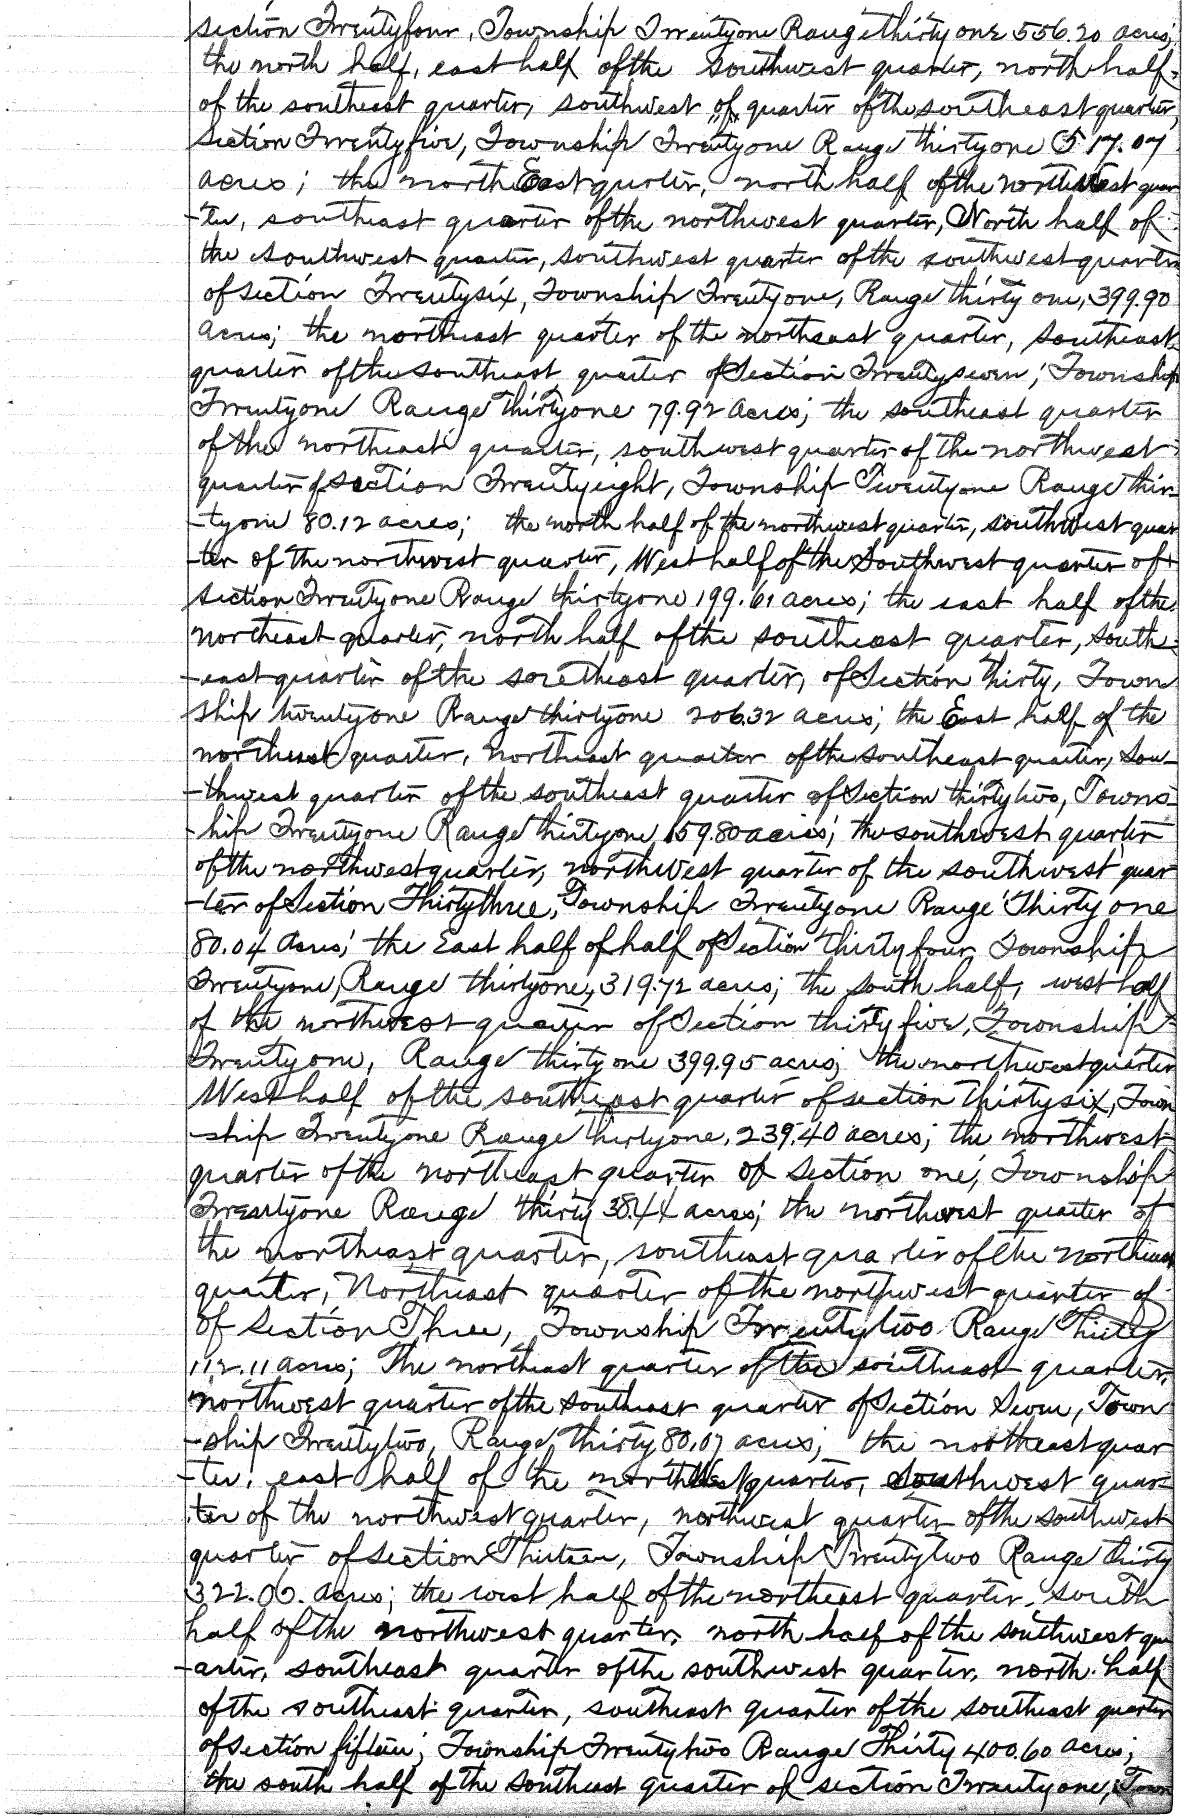 section Twentyfour, Township Twentyone Range thirty one 556.20 acres;
the north half, east half of the southwest quarter, north half
of the southeast quarter, southwest of quarter of the southeast quarter,
Section Twentyfive, Township Twentyone Range thirtyone 517.07
acres; the northEast qurter, north half of the northwest quar
-ter, southeast quarter of the northwest quarter, North half of
the southwest quarter, southwest quarter of the southwest quarter
of section Twentysix, Township Twentyone, Range thirty one, 399.90
acres; the northeast quarter of the northeast quarter, southeast
quarter of the southeast quarter of Section Twentyseven; Township
Twentyone Range thirtyone 79.92 acres; the southeast quarter
of the northeast quarter, southwest quarter of the northwest
quarter of section Twentyeight, Township Twentyone Range thir-
-tyone 80.12 acres; the north half of the northwest quarter, southwest quar
-ter of the northwest quarter, West half of the Southwest quarter of
section Twentyone Range thirtyone 199.61 acres; the east half of the
northeast quarter, north half of the southeast quarter, south-
-east quarter of the southeast quarter, of Section thirty, Town
ship twentyone Range thirtyone 206.32 acres; the East half of the
northeast quarter, northeast quarter of the southeast quarter, Sou-
-thwest quarter of the southeast quarter of Section thirtytwo, Towns-
-hip Twentyone Range thirtyone, 159.80 acres; the southwest quarter
of the northwest quarter, northwest quarter of the southwest quar
-ter of Section Thirtythree, Township Twentyone Range Thirty one
80.04 Acres; the East half of half of Section thirtyfour Township
Twentyone, Range thirtyone, 319.72 acres; the south half, west half
of the northwest quarter of Section thirty five, Township
Twentyone, Range thirty one 399.95 acres; the northwest quarter
West half of the southeast quarter of section thirtysix, Town
-ship Twentyone Range thirtyone, 239.40 acres; the northwest
quarter of the northeast quarter of section one, Township
Twentyone Range thirty 38.44 acres; the northwest quarter of
the northeast quarter, southeast quarter of the northeast
quarter, Northeast quarter of the northwest quarter of
of Section Three, Township Twentytwo Range Thirty
112.11 acres; The northeast quarter of the southeast quarter,
northwest quarter of the southeast quarter of Section Seven, Town
-ship Twentytwo, Range, thirty 80.07 acres; the northeast quar
-ter, east half of the northwest quarter, southwest quar-
ter of the northwest quarter, northwest quarter of the southwest
quarter of section Thirteen, Township Twentytwo Range thirty
322.00. acres; the west half of the northeast quarter, south
half of the northwest quarter, north half of the southwest qu
-arter, southeast quarter of the southwest quarter, north half
of the southeast quarter, southeast quarter of the southeast quarter
of Section fifteen; Township Twentytwo Range Thirty 400.60 acres;
the south half of the southeast quarter of section Twentyone, Town